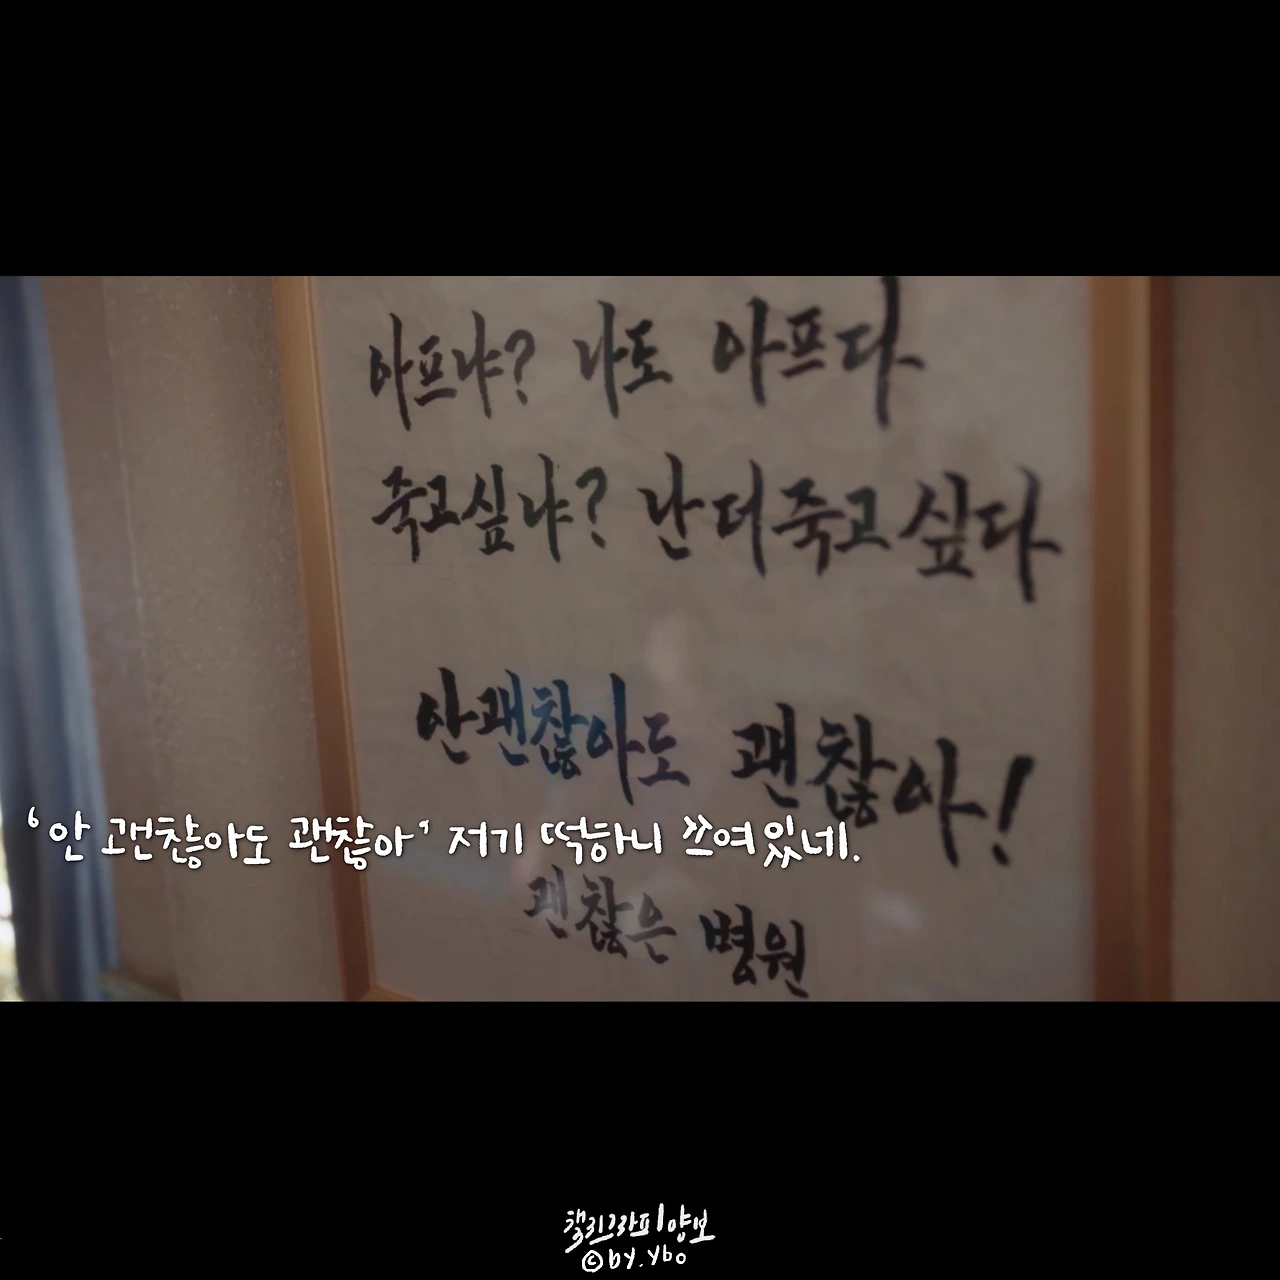 아프냐? 나도 아프다
죽고싶냐? 난 더 죽고 싶다
안괜찮아도 괜찮아!
'안 괜찮아도 괜찮아' 저기 떡하니 쓰여있네.
괜찮은 병원
캘리그라피 양보
©by.ybo